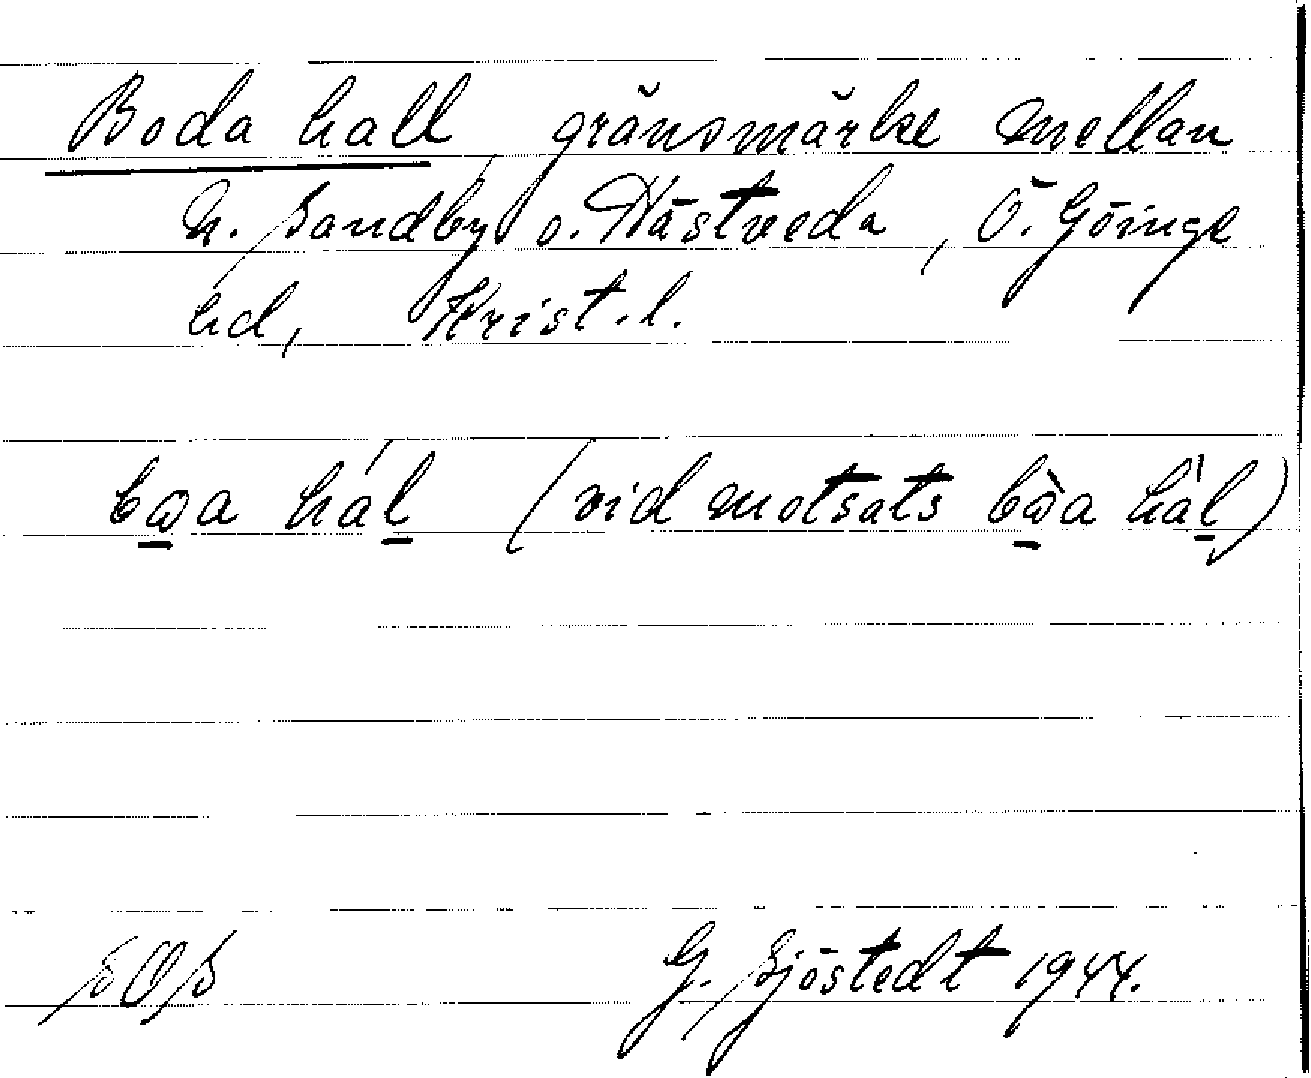 Boda hall, gränsmärke mellan
N. Sandby o. Hästveda, Ö. Göinge
hd, Krist. l.
bωa hál (vid motsats bὼa hàl)
SOS G. Sjöstedt 1944.